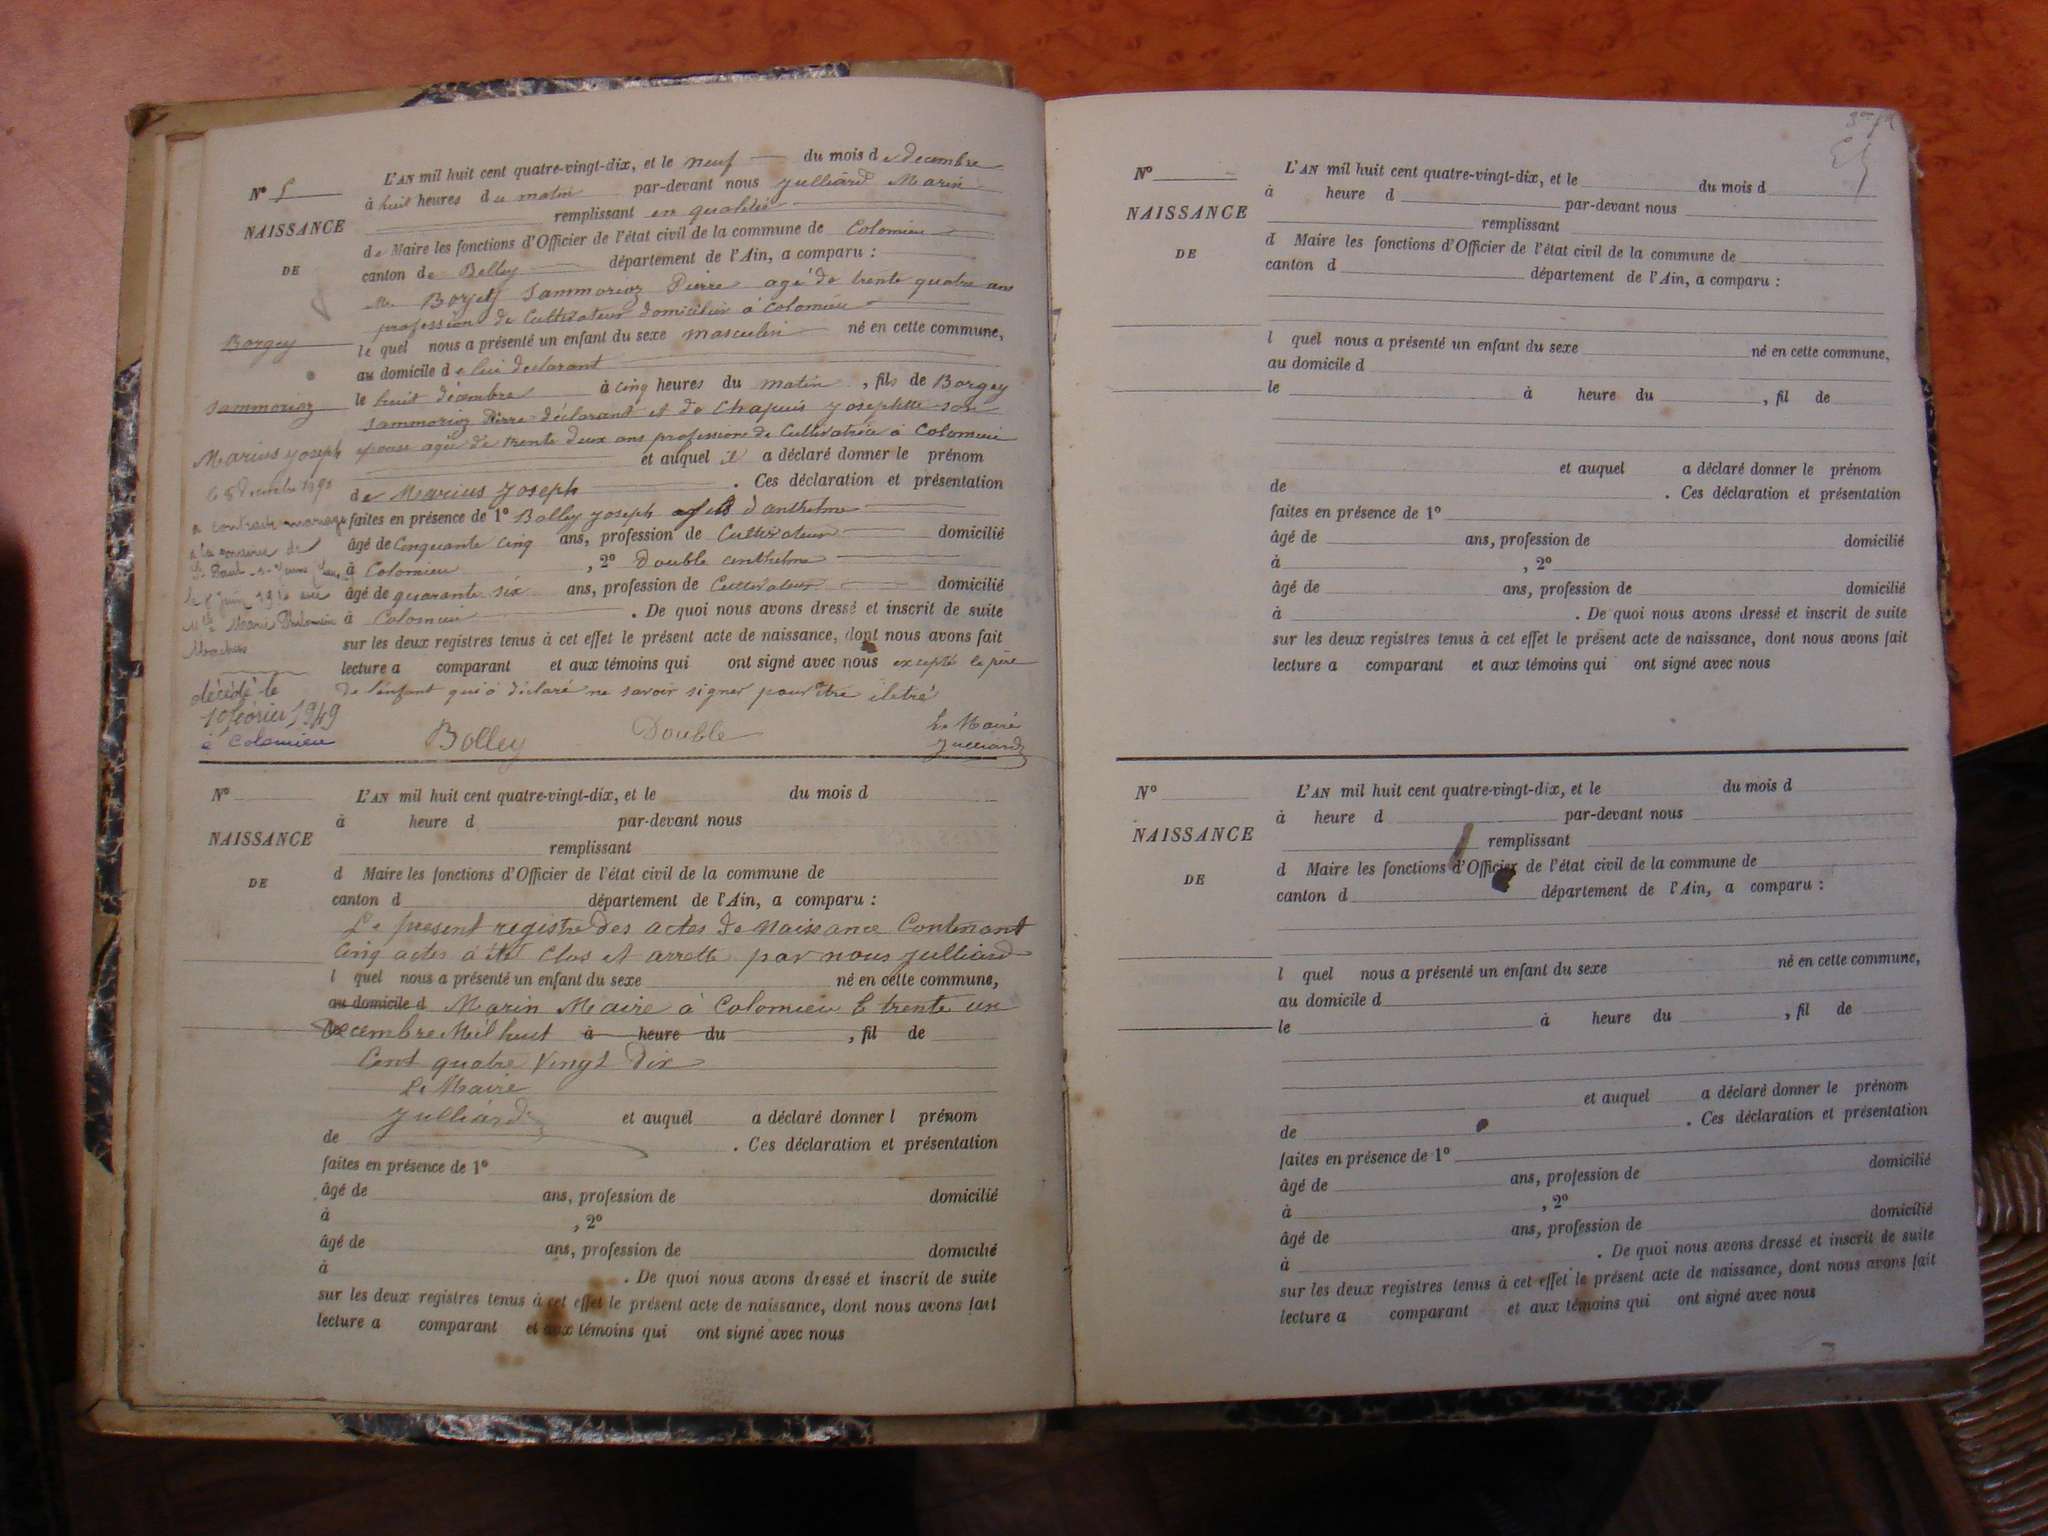 N° 5
NAISSANCE
DE
Borgey
Sammorioz
Marius Joseph
a contracté mariage
à la mairie de
le 8 juin 19
Mlle Marie Philomène
décédé le
10 février 1949
à Colomieu
L'AN mil huit cent quatre-vingt-dix, et le neuf du mois de decembre
à huit heures du matin par-devant nous Julliard Marin
remplissant en qualitée
de Maire les fonctions d'Officier de l'état civil de la commune de Colomieu
canton de Belley département de l'Ain, a comparu :
Mr Borgey Sammorioz Pierre agé de trente quatre ans
profession de Cultivateur domicilié à Colomieu
le quel nous a présenté un enfant du sexe masculin né en cette commune,
au domicile de lui declarant
le huit décembre à cinq heures du matin, fils de Borgey
Sammorioz Pierre déclarant et de Chapuis Josephtte son
épouse agée de trente deux ans profession de Cultivatrice à Colomieu
et auquel il a déclaré donner le prénom
de Marius Joseph . Ces déclaration et présentation
faites en présence de 1° Bolley Joseph fils d'anthelme
âgé de Cinquante cinq ans, profession de Cultivateur domicilié
à Colomieu , 2° Double anthelme
âgé de quarante six ans, profession de Cultivateur domicilié
à Colomieu . De quoi nous avons dressé et inscrit de suite
sur les deux registres tenus à cet effet le présent acte de naissance, dont nous avons fait
lecture a comparant et aux témoins qui ont signé avec nous excepté le père
de l'enfant qui a déclaré ne savoir signer pour être iletré
Bolley Double Le Maire
Julliard
N°
NAISSANCE
DE
L'AN mil huit cent quatre-vingt-dix, et le du mois d
à heure d par-devant nous
remplissant
d Maire les fonctions d'Officier de l'état civil de la commune de
canton d département de l'Ain, a comparu :
Le present registre des actes de Naissance Contenant
Cinq actes a été Clos et arretté par nous Julliard
l quel nous a présenté un enfant du sexe né en cette commune,
au domicile d Marin Maire à Colomieu le trente un
Decembre Mil huit à heure du , fil de
Cent quatre Vingt Dix
Le Maire
Julliard et auquel a déclaré donner l prénom
de . Ces déclaration et présentation
faites en présence de 1°
âgé de ans, profession de domicilié
à , 2°
âgé de ans, profession de domicilié
à . De quoi nous avons dressé et inscrit de suite
sur les deux registres tenus à cet effet le présent acte de naissance, dont nous avons fait
lecture a comparant et aux témoins qui ont signé avec nous
N°
NAISSANCE
DE
L'AN mil huit cent quatre-vingt-dix, et le du mois d
à heure d par-devant nous
remplissant
d Maire les fonctions d'Officier de l'état civil de la commune de
canton d département de l'Ain, a comparu :
l quel nous a présenté un enfant du sexe né en cette commune,
au domicile d
le à heure du , fil de
et auquel a déclaré donner le prénom
de . Ces déclaration et présentation
faites en présence de 1°
âgé de ans, profession de domicilié
à , 2°
âgé de ans, profession de domicilié
à . De quoi nous avons dressé et inscrit de suite
sur les deux registres tenus à cet effet le présent acte de naissance, dont nous avons fait
lecture a comparant et aux témoins qui ont signé avec nous
N°
NAISSANCE
DE
L'AN mil huit cent quatre-vingt-dix, et le du mois d
à heure d par-devant nous
remplissant
d Maire les fonctions d'Officier de l'état civil de la commune de
canton d département de l'Ain, a comparu :
l quel nous a présenté un enfant du sexe né en cette commune,
au domicile d
le à heure du , fil de
et auquel a déclaré donner le prénom
de . Ces déclaration et présentation
faites en présence de 1°
âgé de ans, profession de domicilié
à , 2°
âgé de ans, profession de domicilié
à . De quoi nous avons dressé et inscrit de suite
sur les deux registres tenus à cet effet le présent acte de naissance, dont nous avons fait
lecture a comparant et aux témoins qui ont signé avec nous